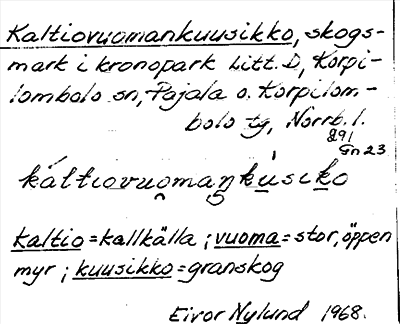 Kaltiovuomankuusikko, skogs-
mark i kronopark Litt. D, Korpi-
lombolo sn, Pajala o. Korpilom-
bolo tg, Norrb. l.
291
Gn 23
káltiovu̯omaŋkúsiko
kaltio = kallkälla ; vuoma = stor, öppen
myr ; kuusikko = granskog
Eivor Nylund 1968.